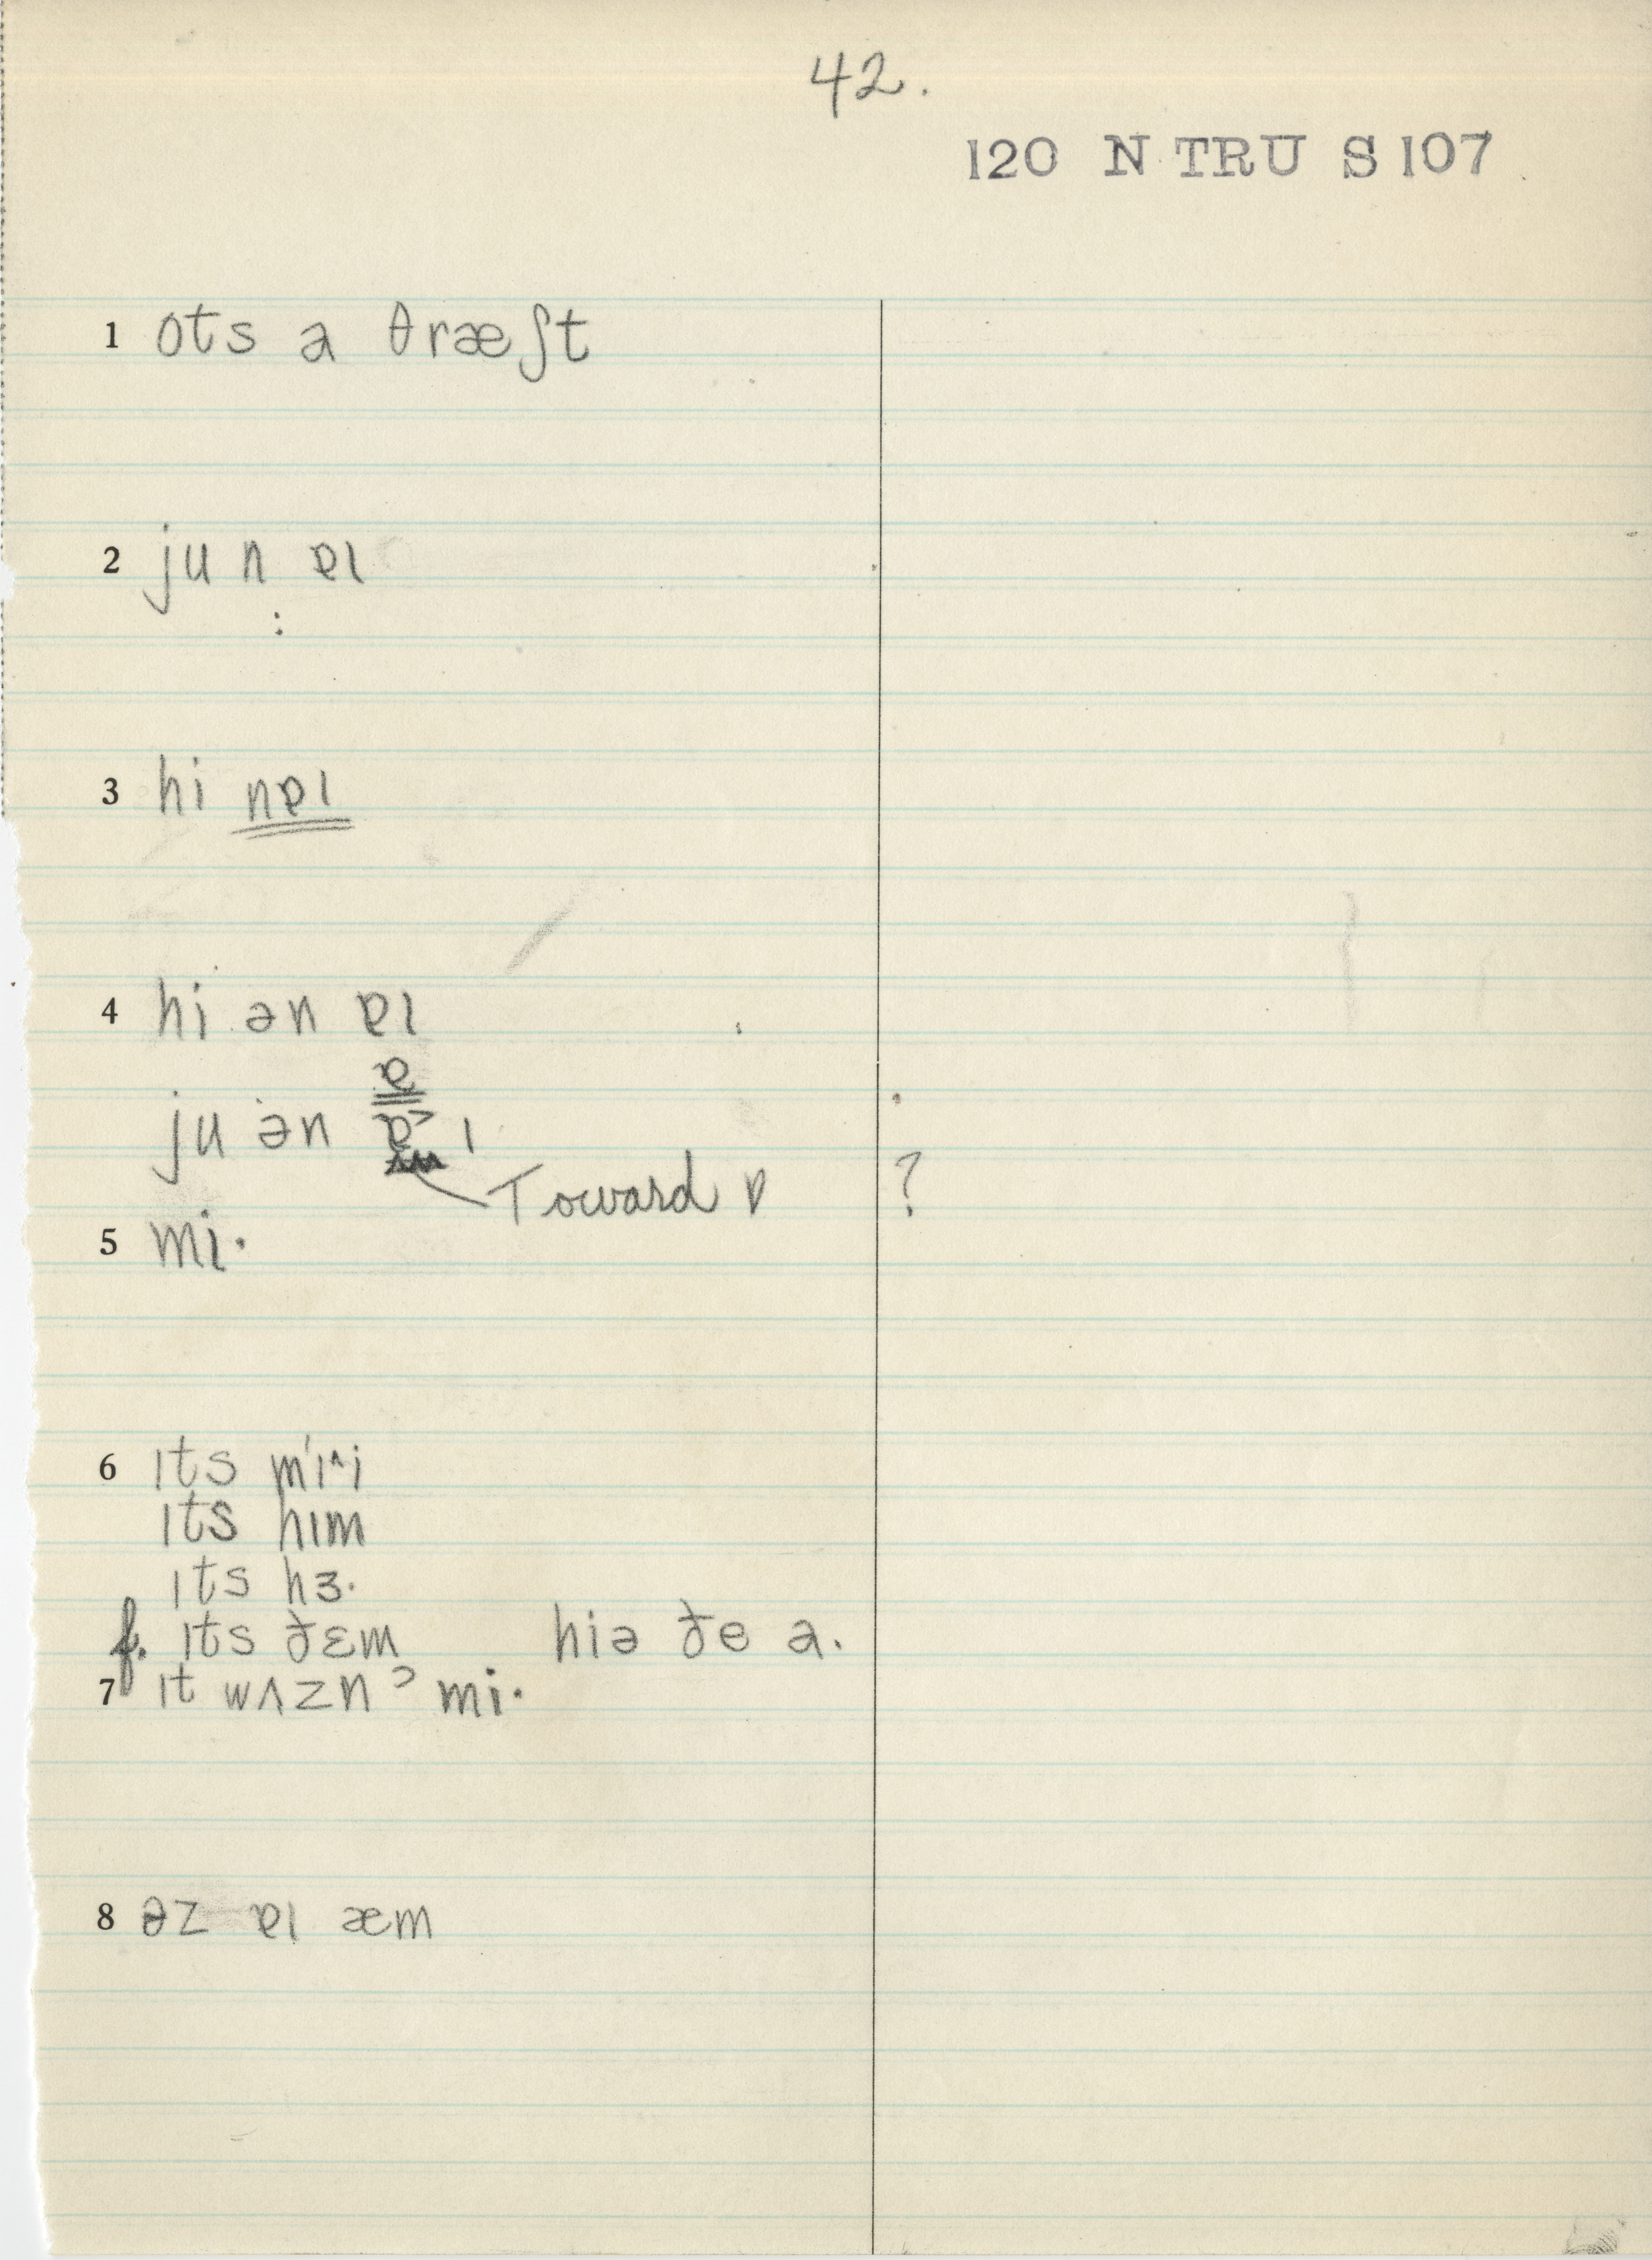 42.
120 N TRU S 107
1 ots a θræʃt
2 ju n ɐɪ
:
3 hi nɐɪ
4 hi ən ɐɪ
ɐ
ju ən ɐ˃ ɪ
Toward ɒ ?
5 mi·
6 ɪts mɪ^i
ɪts hɪm
ɪts hɜ·
f. ɪts ðɛm hiə ðe a.
7 ɪt wʌzn ˀ mi·
8 əz ɐɪ æm